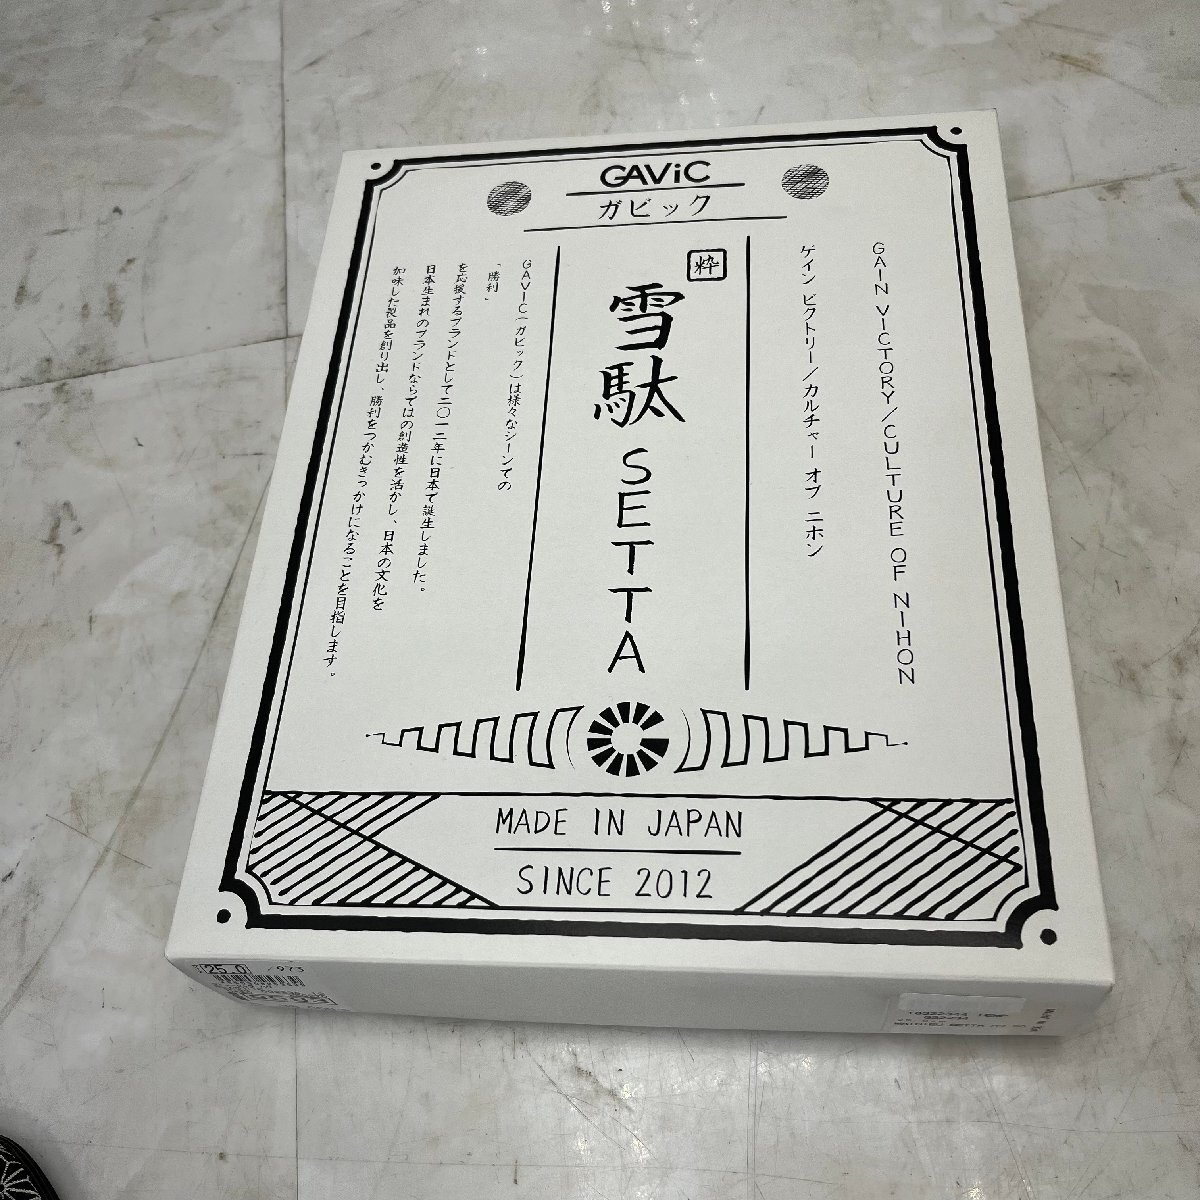 GAViC
ガビック
GAIN VICTORY/CULTURE OF NIHON
ゲイン ビクトリー/カルチャー オブ ニホン
粋
雪駄 SETTA
GAVIC(ガビック)は様々なシーンでの
「勝利」
を応援するブランドとして二〇一二年に日本で誕生しました。
日本生まれのブランドならではの創造性を活かし、日本の文化を
加味した製品を創り出し、勝利をつかむきっかけになることを目指します。
MADE IN JAPAN
SINCE 2012
25.0